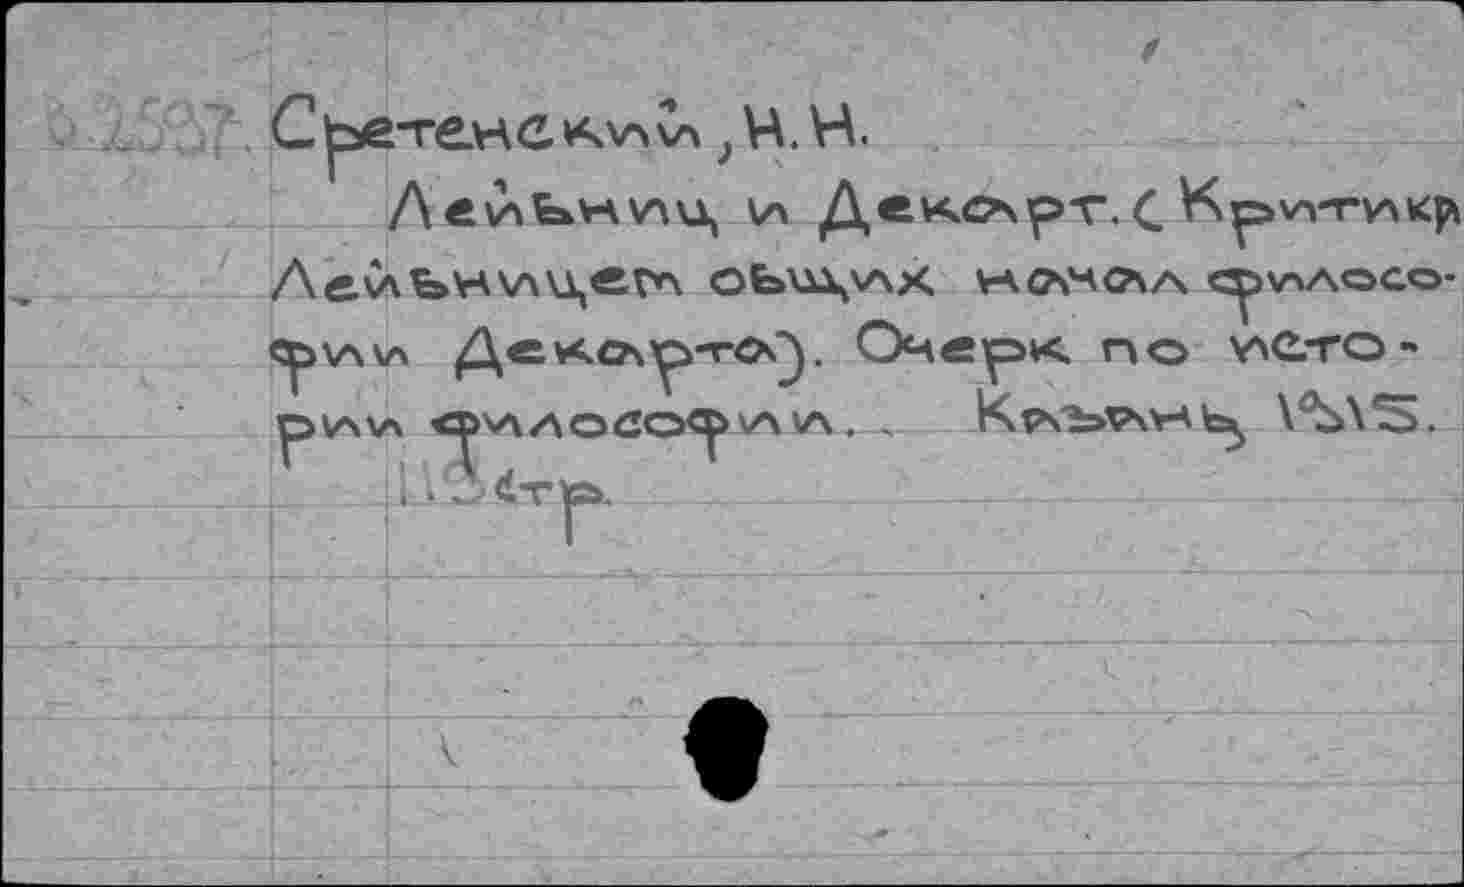 Сретенский, Н. Н.
Лейбниц и Декарт. (Критика
Лейбницем общих начал филосо-
фии Декарта). Очерк по исто-
рии философии. . Казань, 1915.
стр.